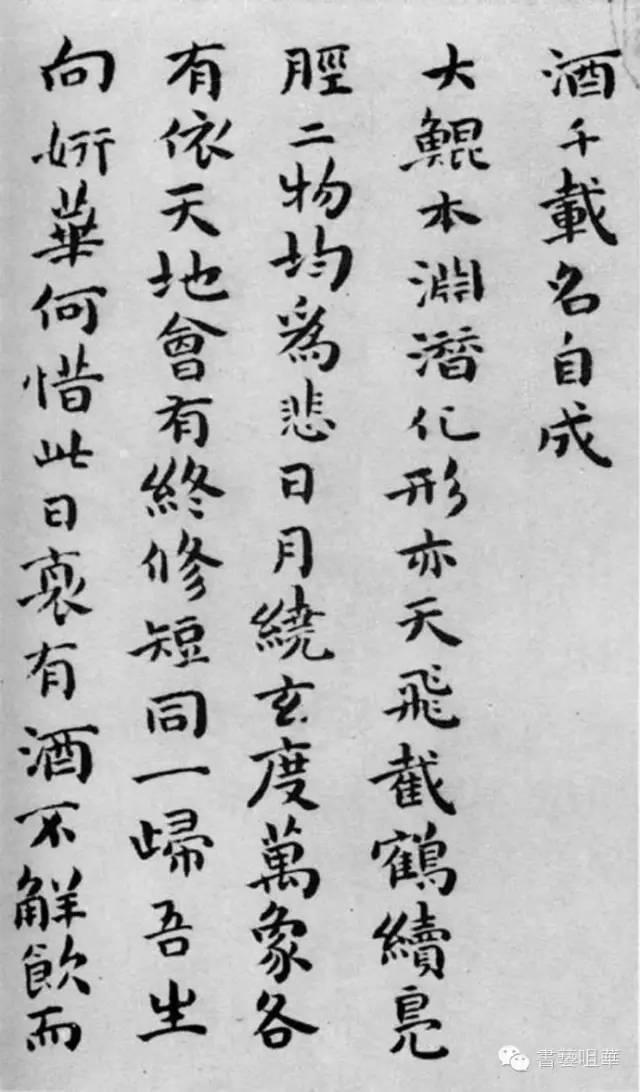 酒千載名自成
大鯤本淵潛化形亦天飛截鶴續鳧
脛二物均爲悲日月繞玄度萬象各
有依天地會有終修短同一歸吾生
向妍華何惜此日衰有酒不解飲而
書藝咀華